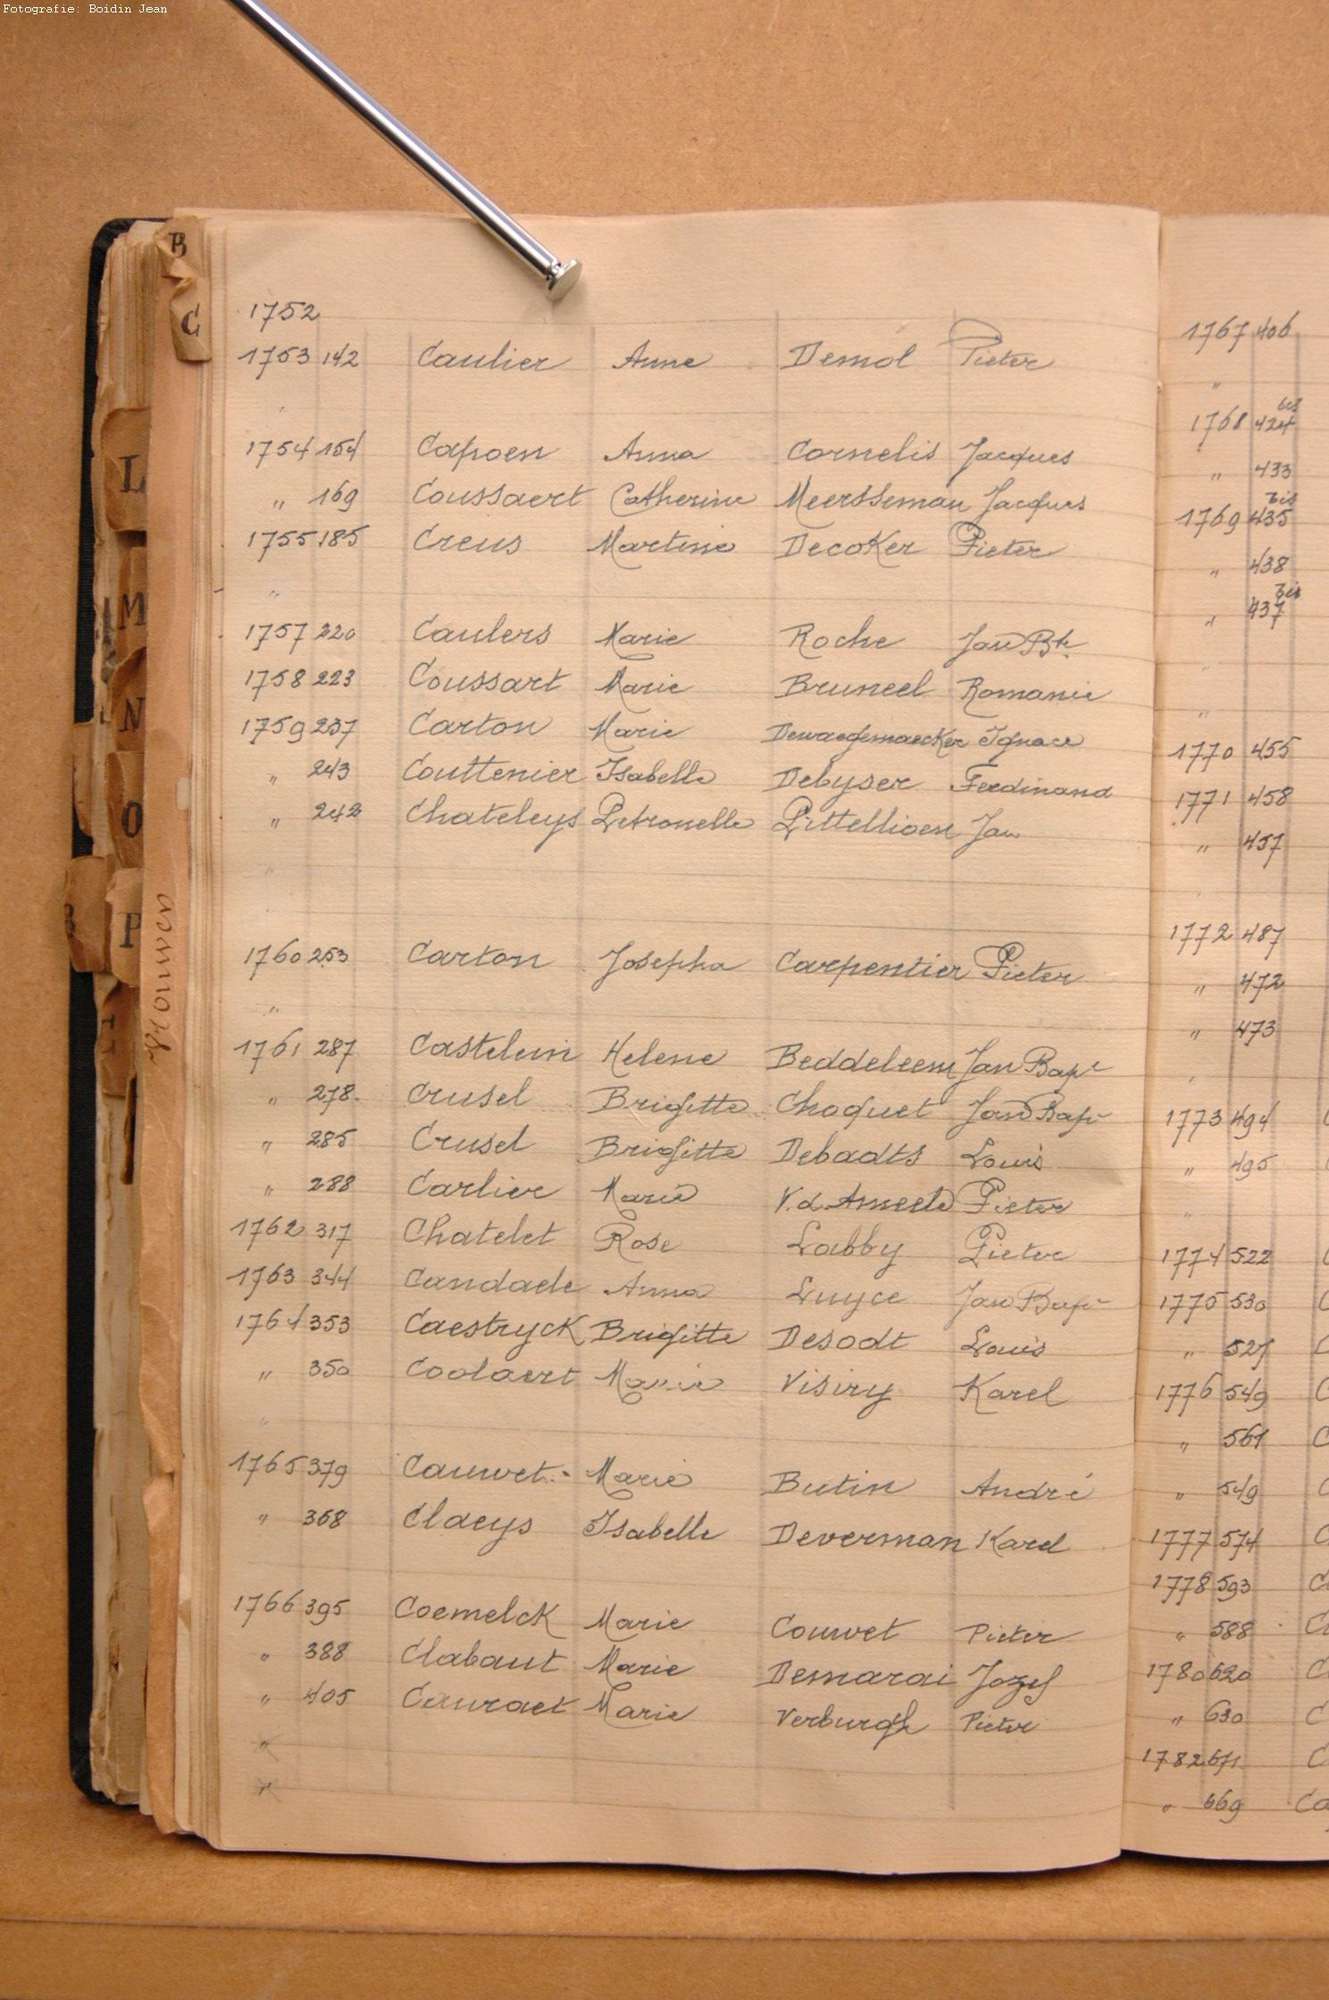 Fotografie: Boidin Jean
B
C
L
M
N
O
P
vrouwen
1752
1753 142 Caulier Anne Demol Pieter
1754 154 Capoen Anna Cornelis Jacques
" 169 Coussaert Catherine Meersseman Jacques
1755 185 Creus Martine Decoker Pieter
"
1757 220 Caulers Marie Roche Jan Bte
1758 223 Coussart Marie Bruneel Romanie
1759 237 Carton Marie Dewaegemaecker Ignace
" 243 Couttenier Isabelle Debyser Ferdinand
" 242 Chateleys Petronelle Pittellioen Jan
"
1760 253 Carton Josepha Carpentier Pieter
"
1761 287 Castelein Helene Beddeleem Jan Bapt
" 278 Crusel Brigitte Choquet Jan Bapt
" 285 Crusel Brigitte Debadts Louis
" 288 Carlier Marie V.d. Ameele Pieter
1762 317 Chatelet Rose Labby Pieter
1763 344 Candaele Anna Luyce Jan Bapt
1764 353 Caestryck Brigitte Desodt Louis
" 350 Coolaert Marie Visiry Karel
"
1765 379 Cauwet Marie Butin André
" 368 Claeys Isabelle Deverman Karel
1766 395 Coemelck Marie Couwet Pieter
" 388 Clabaut Marie Demarai Jozef
" 405 Couraet Marie Verburgh Pieter
"
"
1767 406
"
1768 424 bis
" 433
1769 435 bis
" 438
" 437 bis
"
"
1770 455
1771 458
" 457
1772 487
" 472
" 473
"
1773 494
" 495
"
1774 522
1775 530
" 527
1776 549
" 561
" 549
1777 574
1778 593
" 588
1780 620
" 630
1782 671
" 669 Ca